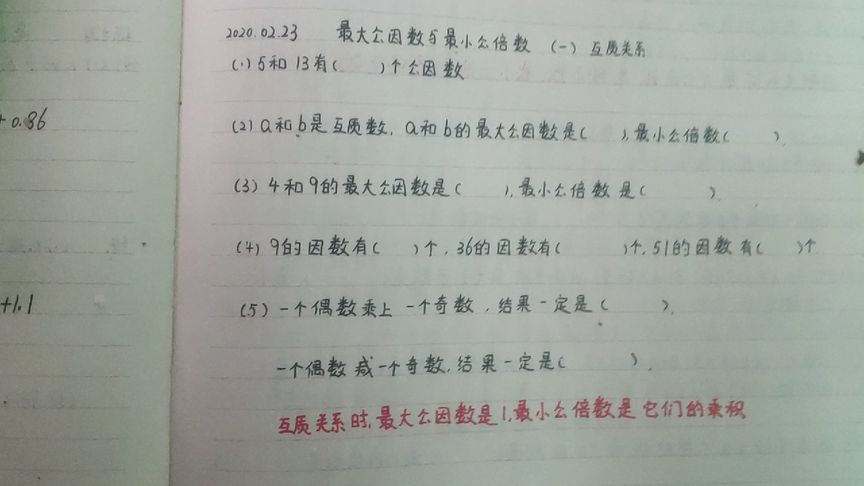 2020.02.23 最大公因数与最小公倍数 (一) 互质关系
(1) 5和13有( )个公因数
(2) a和b是互质数, a和b的最大公因数是( ), 最小公倍数( ).
(3) 4和9的最大公因数是( ), 最小公倍数是( ).
(4) 9的因数有( )个, 36的因数有( )个, 51的因数有( )个
(5) 一个偶数乘上一个奇数, 结果一定是( ).
一个偶数减一个奇数, 结果一定是( ).
互质关系时, 最大公因数是1, 最小公倍数是它们的乘积
+0.86
+1.1